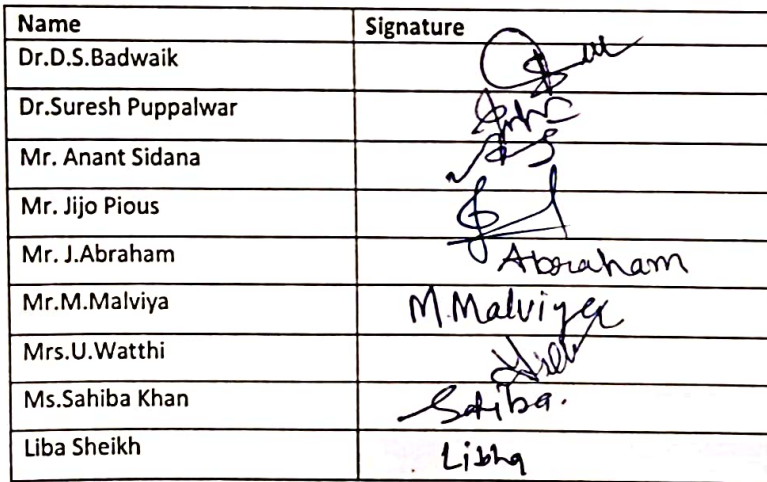 Name Signature
Dr.D.S.Badwaik
Dr.Suresh Puppalwar
Mr. Anant Sidana
Mr. Jijo Pious
Mr. J.Abraham Abraham
Mr.M.Malviya M.Malviya
Mrs.U.Watthi
Ms.Sahiba Khan Sahiba.
Liba Sheikh